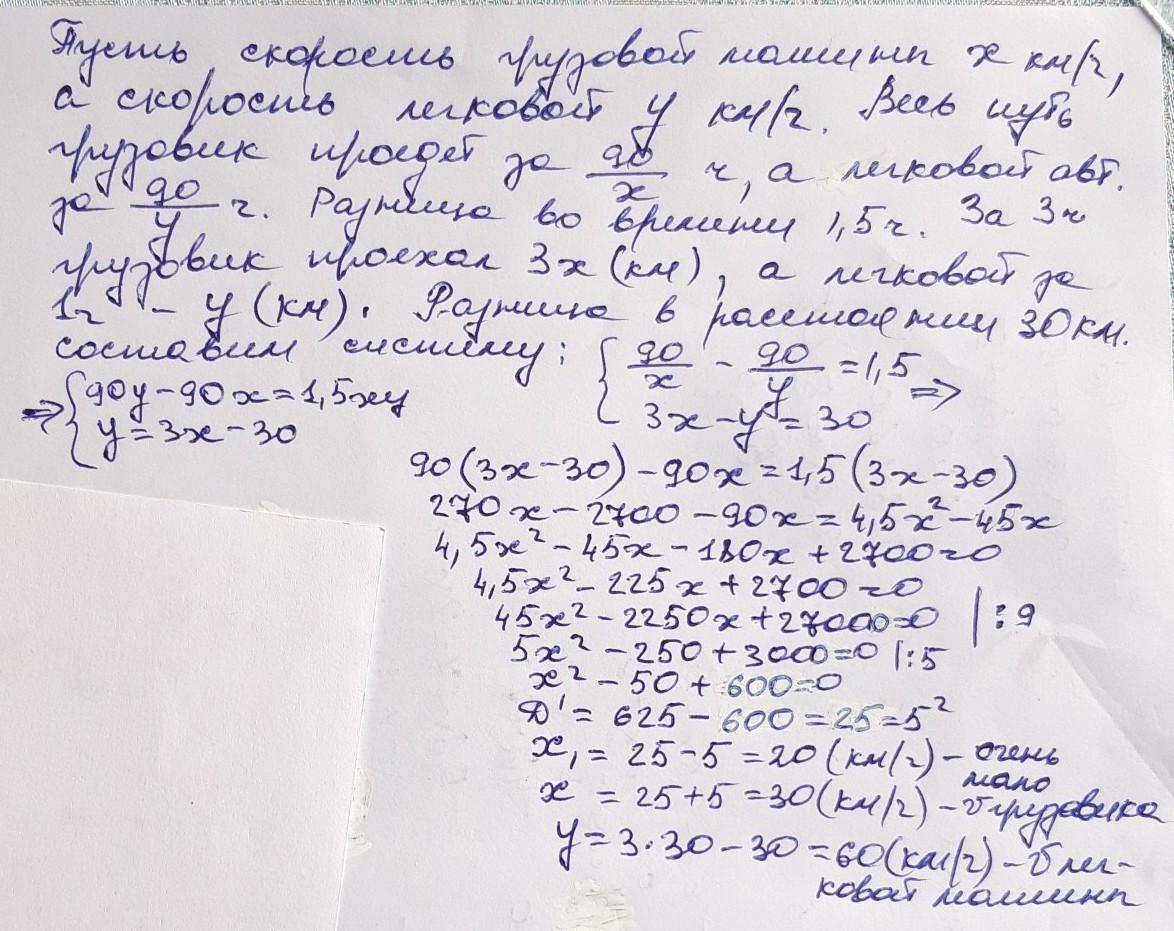 Пусть скорость грузовой машины x км/ч,
а скорость легковой y км/ч. Весь путь
грузовик проедет за 90/x ч, а легковой авт.
за 90/y ч. Разница во времени 1,5ч. За 3ч
грузовик проехал 3x (км), а легковой за
1ч – y (км). Разница в расстоянии 30км.
составим систему: { 90/x - 90/y = 1,5 =>
3x-y=30
=> { 90y-90x=1,5xy
y=3x-30
90(3x-30)-90x=1,5(3x-30)
270x-2700-90x=4,5x²-45x
4,5x²-45x-180x+2700=0
4,5x²-225x+2700=0
45x²-2250x+27000=0 |:9
5x²-250+3000=0 |:5
x²-50+600=0
D'=625-600=25=5²
x₁=25-5=20(км/ч)- очень
мало
x =25+5=30(км/ч)-v грузовика
y=3·30-30=60(км/ч)-v лег-
ковой машины